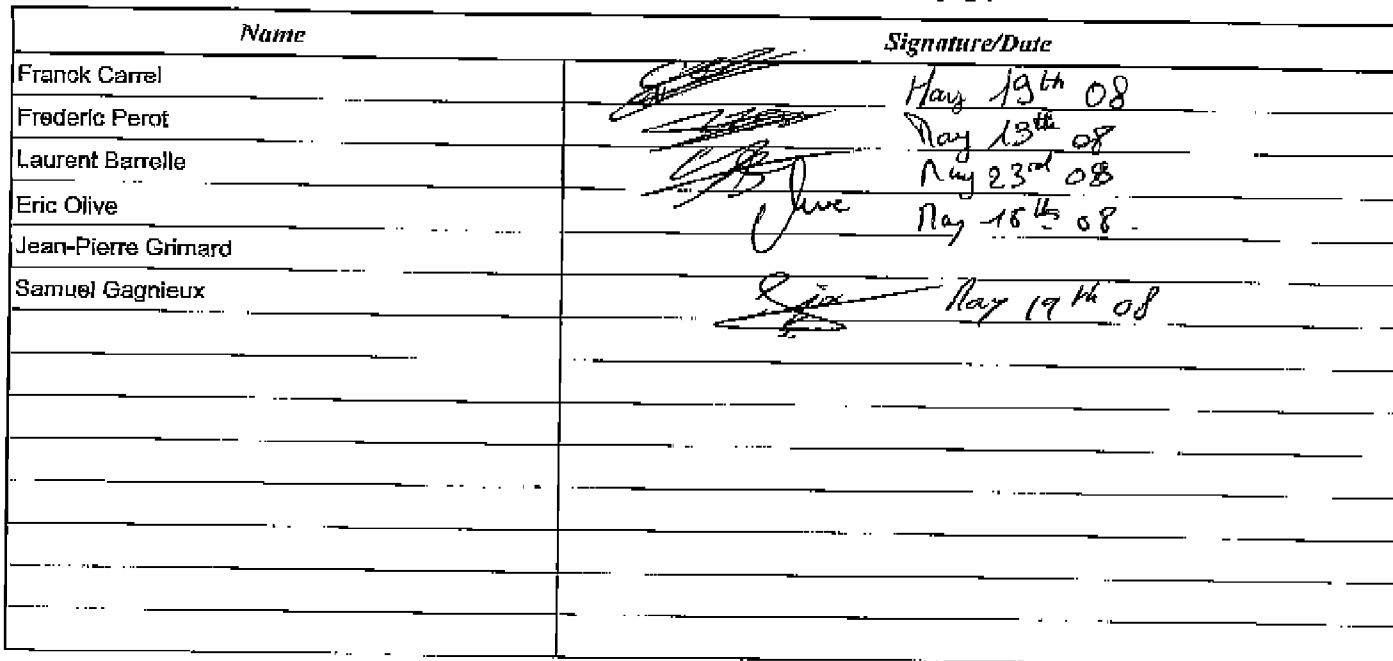 Name Signature/Date
Franck Carrel May 19th 08
Frederic Perot May 13th 08
Laurent Barrelle May 23rd 08
Eric Olive Olive May 16th 08.
Jean-Pierre Grimard
Samuel Gagnieux May 19th 08